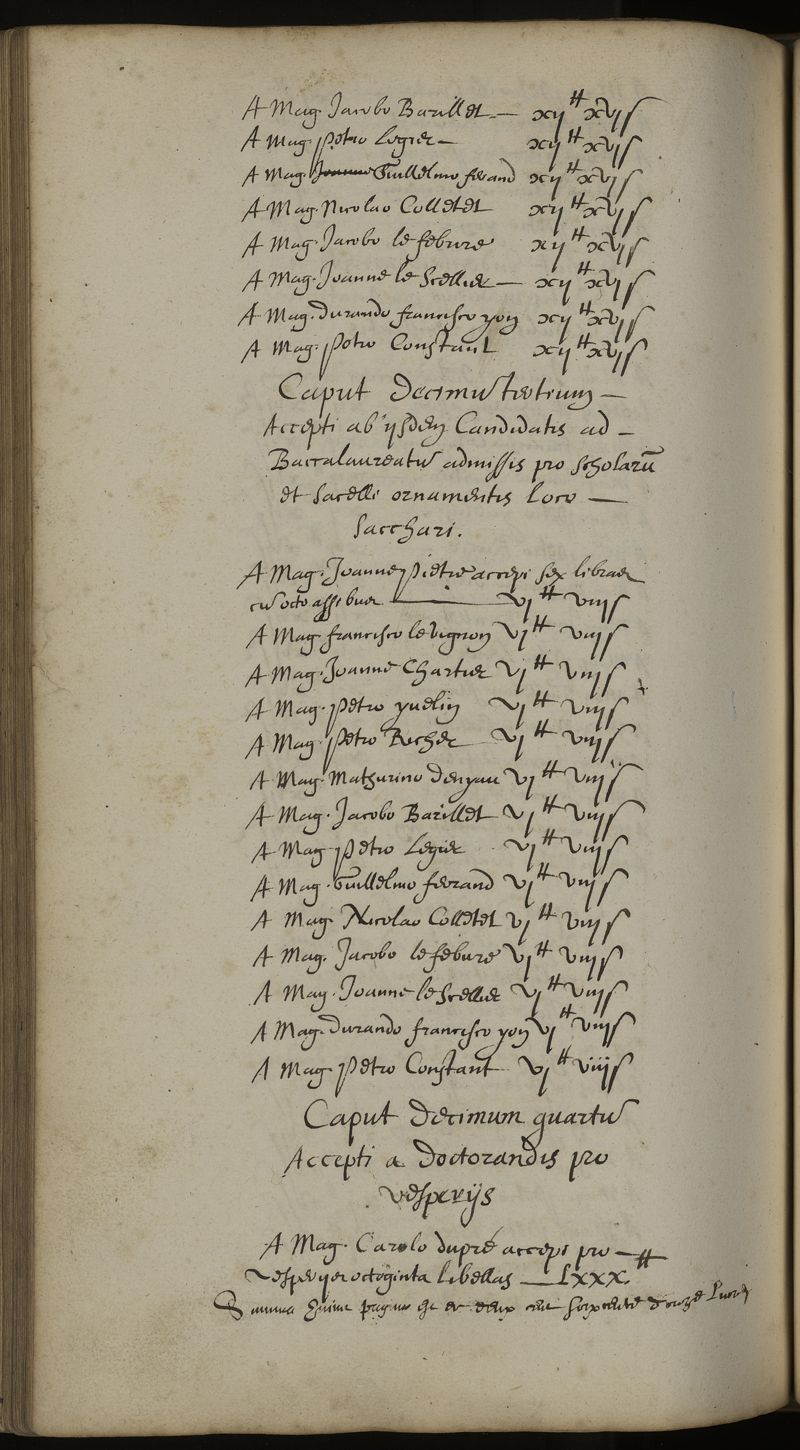 A Mag. Jacobo Barillet — xij ₶ xvj s
A Mag. Petro Legier — xij ₶ xvj s
A Mag. Guillelmo ferand xij ₶ xvj s
A Mag. Nicolao Colletet xij ₶ xvj s
A Mag. Jacobo le febure xij ₶ xvj s
A Mag. Joanne le Scellier — xij ₶ xvj s
A Mag. durando francisco yon xij ₶ xvj s
A Mag. Petro Constant xij ₶ xvj s
Caput Decimū tertium —
Accepti ab ijsdem Candidatis ad —
Baccalaureatū admissis pro scholarū
et sacelli ornamentis loco —
sacchari.
A Mag. Joanne Pietre accepi sex libras
cū octo assibus — vj ₶ viij s
A Mag. francisco le vignon vj ₶ viij s
A Mag. Joanne Chartier vj ₶ viij s
A Mag. Petro yvelin vj ₶ viij s
A Mag. Petro Richer vj ₶ viij s
A Mag. Mathurino denyau vj ₶ viij s
A Mag. Jacobo Barillet vj ₶ viij s
A Mag. Petro Legier vj ₶ viij s
A Mag. Guillelmo ferrand vj ₶ viij s
A Mag. Nicolao Colletet vj ₶ viij s
A Mag. Jacobo lefebure vj ₶ viij s
A Mag. Joanne le Scellier vj ₶ viij s
A Mag. durando francisco yon vj ₶ viij s
A Mag. Petro Constant vj ₶ viij s
Caput Decimum quartū
Accepti a Doctorandis pro
vesperijs
A Mag. Carolo dupré accepi pro — ₶
vesperijs octoginta libellas — LXXX.
Summa paginae